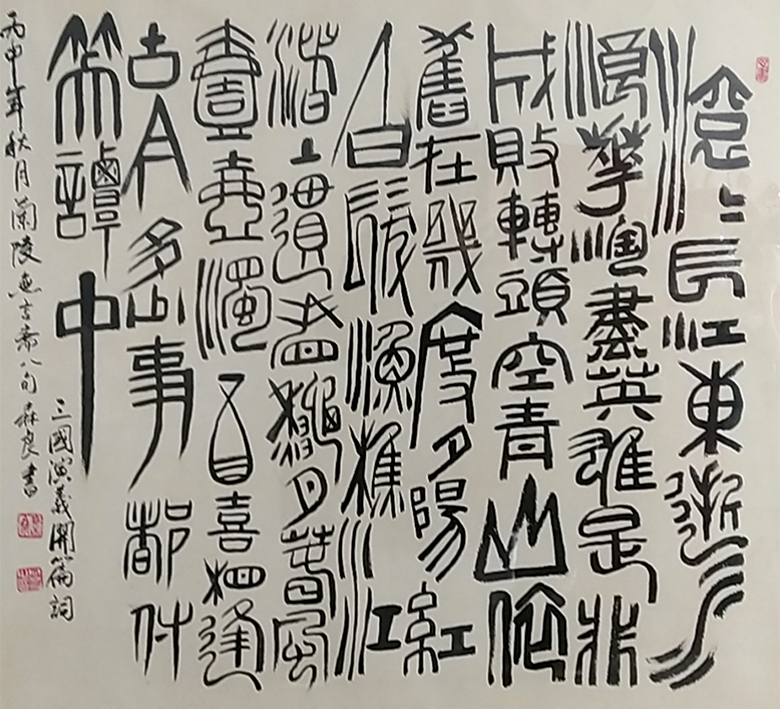 滾〻長江東逝水
浪花淘盡英雄是非
成敗轉頭空青山依
舊在幾度夕陽紅
白髮漁樵江
渚上慣看秋月春風
壹壺濁酒喜相逢
古今多少事都付
笑譚中
三國演義開篇詞
丙申年秋月蘭陵無言齋八旬森良書